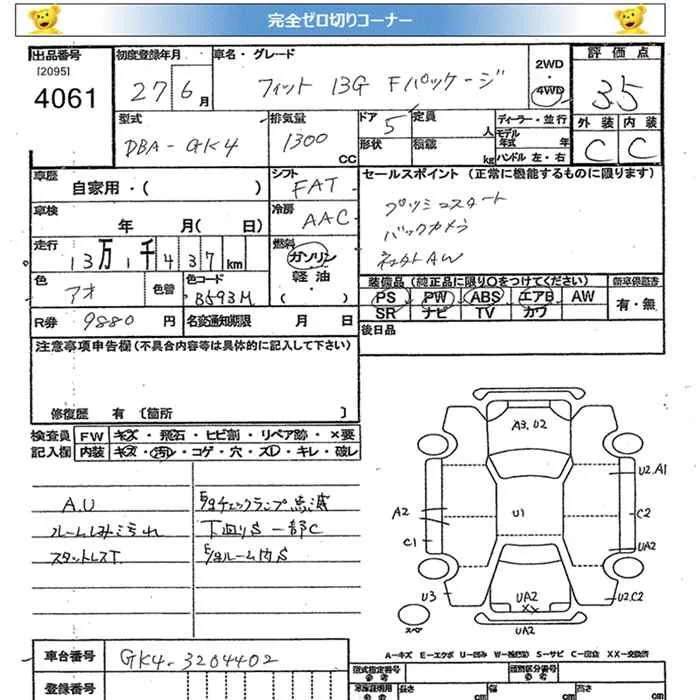 完全ゼロ切りコーナー
出品番号
[2095]
4061
初度登録年月
27 6 月
車名・グレード
フィット 13G Fパッケージ
2WD
・
4WD
評価点
3.5
外装 内装
C C
型式
DBA-GK4
排気量
1300 CC
ドア 5
定員 人
形状
積載 kg
ディーラー・並行
モデル年式 年
ハンドル 左・右
車歴
自家用・( )
シフト
FAT
セールスポイント (正常に機能するものに限ります)
プッシュスタート
バックカメラ
社外AW
車検
年 月( 日)
冷房
AAC
走行
13万1千437 km
燃料
ガソリン
軽油
・( )
色
アオ
色替
色コード
B593M
装備品 (純正品に限り○をつけてください)
PS PW ABS エアB AW
SR ナビ TV カワ
新車保証書
有・無
R券 9880 円
名変通知期限 月 日
後日品
注意事項申告欄 (不具合内容等は具体的に記入して下さい)
修復歴 有 [箇所 ]
検査員 FW キズ・飛石・ヒビ割・リペア跡・×要
記入欄 内装 キズ・汚れ・コゲ・穴・スレ・キレ・破レ
A.U
ルームしみ汚れ
スタットレスT
E/gチェックランプ点滅
下回りS 一部C
E/gルーム内S
A3.U2
U2.A1
A2
U1
C2
C1
UA2
U3
UA2
XX
U2.C2
スペア
UA2
A-キズ E-エクボ U-凹み W-波(歪) S-サビ C-腐食 XX-交換済
車台番号 GK4-3204402
登録番号
型式指定番号
参考
類別区分番号
参考
車庫証明用
参考
長さ cm
幅 cm
高 cm